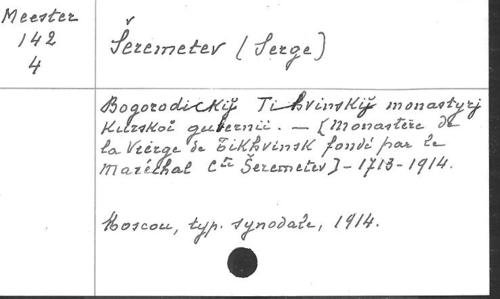 Meester
142
4
Šeremetev (Serge)
Bogorodickij Tihvinskij monastyrj
Kurskoĭ gubernii. — [Monastère de
la Vierge de Tikhvinsk fondé par le
Maréchal Cte Šeremetev] - 1713-1914.
Moscou, typ. synodale, 1914.